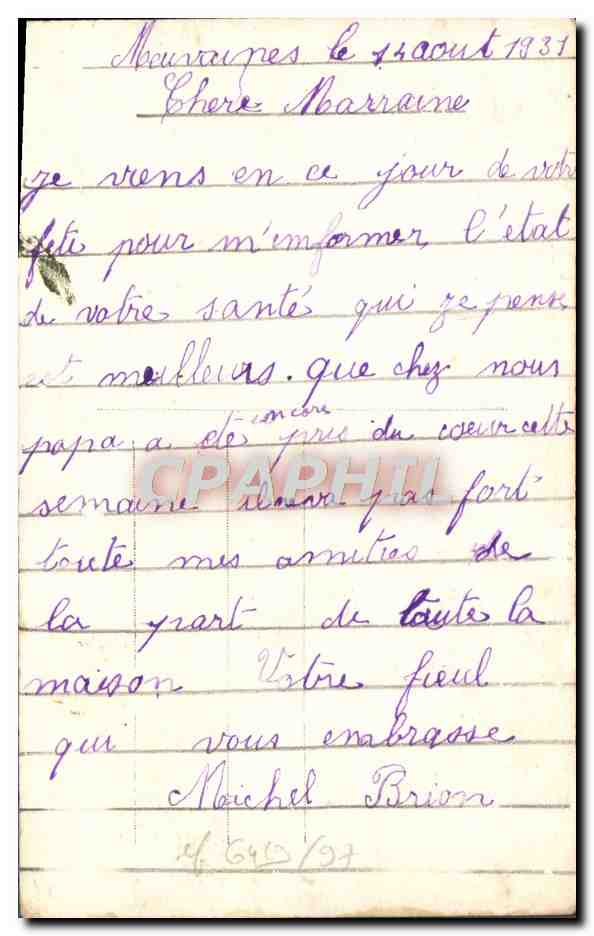 Meuvaines le 14 aout 1931
Chere Marraine
je viens en ce jour de votre
fete pour m'informer l'état
de votre santé qui je pense
est meilleurs. que chez nous
papa a été encore pris du coeur cette
semaine il ne va pas fort
toute mes amities de
la part de toute la
maison Votre fieul
qui vous embrasse
Michel Brion
CPAPHIL